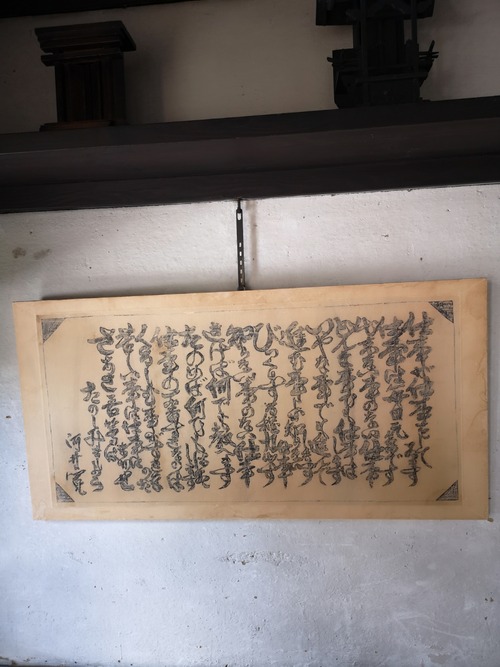 仕事が仕事をしてゐます
仕事は毎日元気です
出来ない事のない仕事
どんな事でも仕事はします
いやな事でも進んでします
進む事しか知らない仕事
びっくりする程力出す
知らない事のない仕事
きけば何でも教へます
たのめば何でもはたします
仕事の一番すきなのは
くるしむ事がすきなのだ
苦しい事は仕事にまかせ
さあさ吾等はたのしみましょう